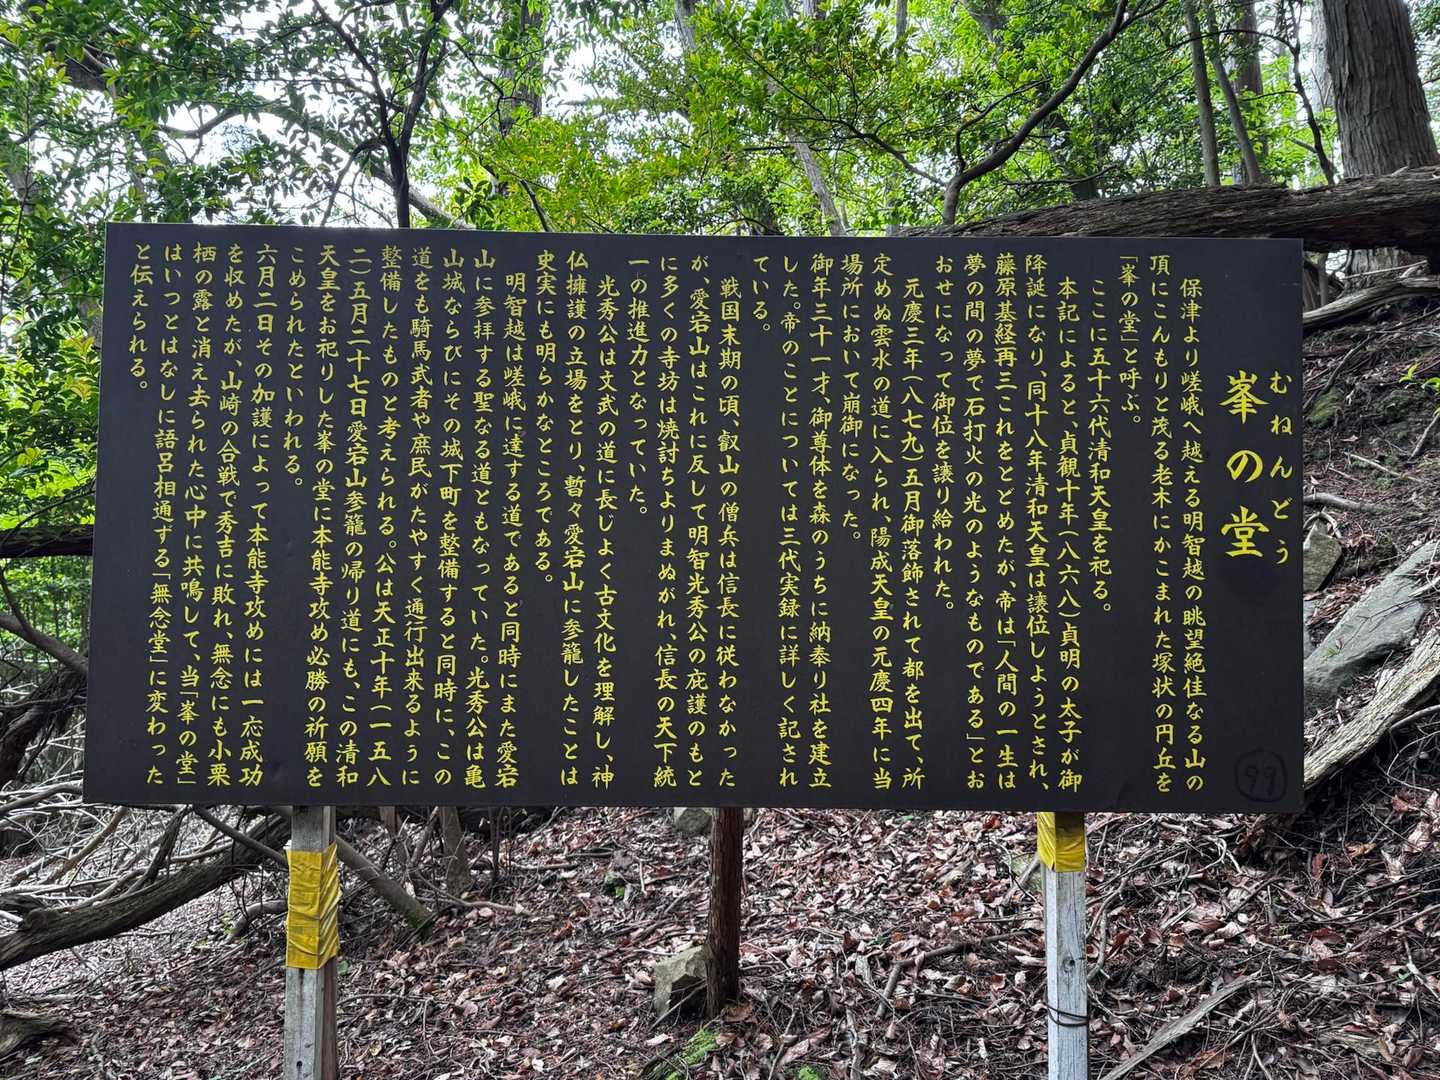 むねんどう
峯の堂
保津より嵯峨へ越える明智越の眺望絶佳なる山の
頂にこんもりと茂る老木にかこまれた塚状の円丘を
「峯の堂」と呼ぶ。
ここに五十六代清和天皇を祀る。
本記によると、貞観十年(八六八)貞明の太子が御
降誕になり、同十八年清和天皇は譲位しようとされ、
藤原基経再三これをとどめたが、帝は「人間の一生は
夢の間の夢で石打火の光のようなものである」とお
おせになって御位を譲り給われた。
元慶三年(八七九)五月御落飾されて都を出て、所
定めぬ雲水の道に入られ、陽成天皇の元慶四年に当
場所において崩御になった。
御年三十一才、御尊体を森のうちに納奉り社を建立
した。帝のことについては三代実録に詳しく記され
ている。
戦国末期の頃、叡山の僧兵は信長に従わなかった
が、愛宕山はこれに反して明智光秀公の庇護のもと
に多くの寺坊は焼討ちよりまぬがれ、信長の天下統
一の推進力となっていた。
光秀公は文武の道に長じよく古文化を理解し、神
仏擁護の立場をとり、暫々愛宕山に参籠したことは
史実にも明らかなところである。
明智越は嵯峨に達する道であると同時にまた愛宕
山に参拝する聖なる道ともなっていた。光秀公は亀
山城ならびにその城下町を整備すると同時に、この
道をも騎馬武者や庶民がたやすく通行出来るように
整備したものと考えられる。公は天正十年(一五八
二)五月二十七日愛宕山参籠の帰り道にも、この清和
天皇をお祀りした峯の堂に本能寺攻め必勝の祈願を
こめられたといわれる。
六月二日その加護によって本能寺攻めには一応成功
を収めたが、山崎の合戦で秀吉に敗れ、無念にも小栗
栖の露と消え去られた心中に共鳴して、当「峯の堂」
はいつとはなしに語呂相通する「無念堂」に変わった
と伝えられる。
99